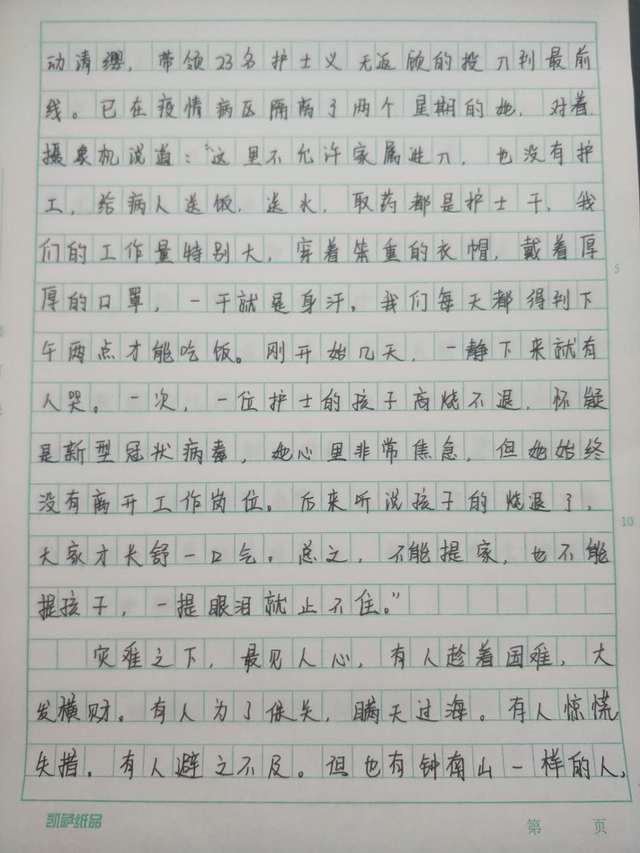 动清缨，带领23名护士义无返顾的投入到最前
线。已在疫情病区隔离了两个星期的她，对着
摄象机说道：“这里不允许家属进入，也没有护
工，给病人送饭，送水，取药都是护士干，我
们的工作量特别大，穿着笨重的衣帽，戴着厚
厚的口罩，一干就是身汗。我们每天都得到下
午两点才能吃饭。刚开始几天，一静下来就有
人哭。一次，一位护士的孩子高烧不退，怀疑
是新型冠状病毒，她心里非常焦急，但她始终
没有离开工作岗位。后来听说孩子的烧退了，
大家才长舒一口气。总之，不能提家，也不能
提孩子，一提眼泪就止不住。”
灾难之下，最见人心，有人趁着困难，大
发横财。有人为了保关，瞒天过海。有人惊慌
失措。有人避之不及。但也有钟南山一样的人，
5
10
凯萨纸品
第 页